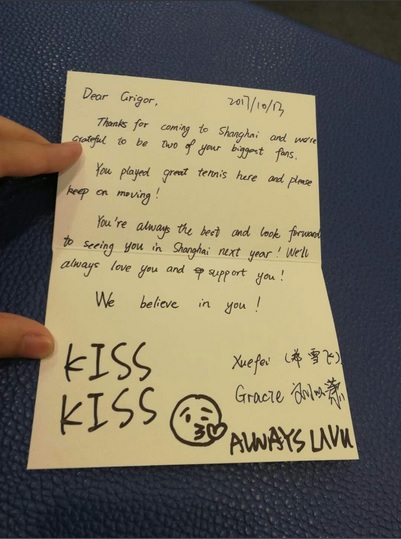 Dear Grigor,
2017/10/13
Thanks for coming to Shanghai and we're
grateful to be two of your biggest fans.
You played great tennis here and please
keep on moving!
You're always the best and look forward
to seeing you in Shanghai next year! We'll
always love you and support you!
We believe in you!
KISS
KISS
Xuefei (雪飞)
Gracie
ALWAYS LUVU